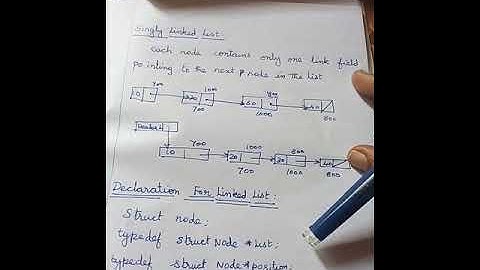 Singly Linked List
each node contains only one link field
pointing to the next node in the list
700 1000 800
10 20 60 40
700 1000 800
Header
700 1000 800
10 20 30 40
700 1000 800
Declaration For Linked List:
Struct node;
typedef struct Node *List;
typedef struct Node *position;